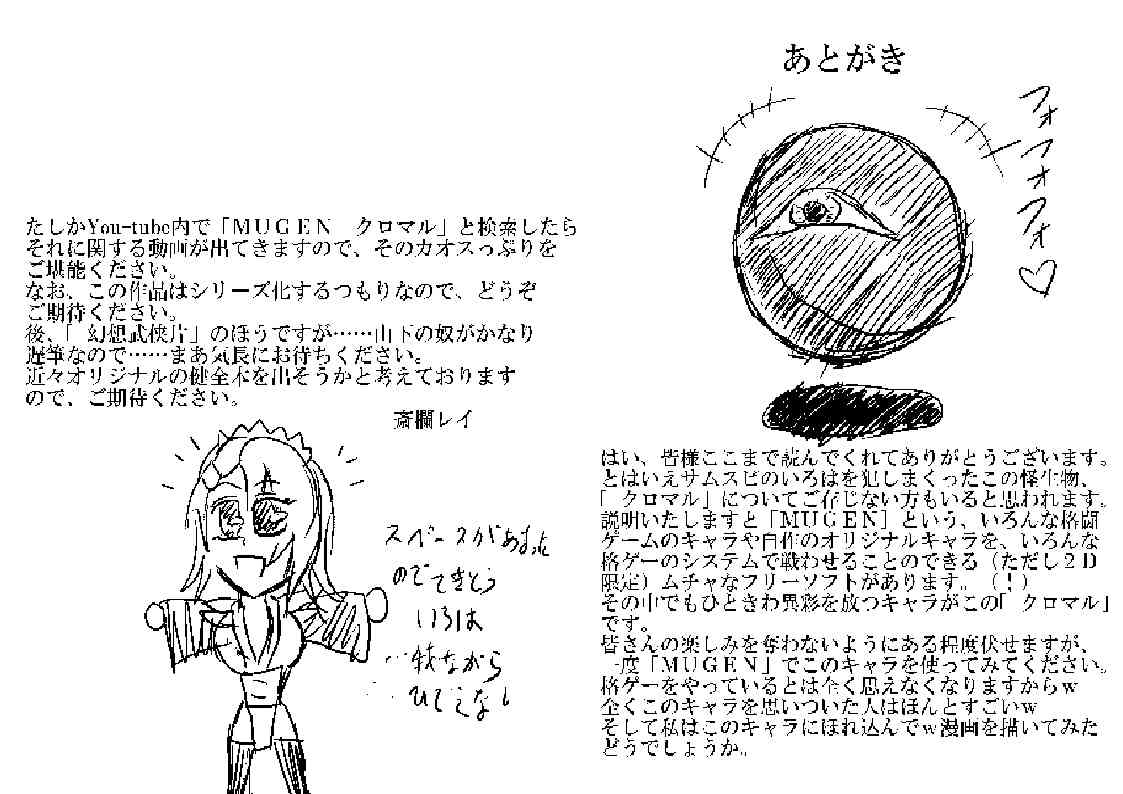 あとがき
フォフォフォ♡
はい、皆様ここまで読んでくれてありがとうございます。
とはいえサムスピのいろはを犯しまくったこの怪生物、
「クロマル」についてご存じない方もいると思われます。
説明いたしますと「ＭＵＧＥＮ」という、いろんな格闘
ゲームのキャラや自作のオリジナルキャラを、いろんな
格ゲーのシステムで戦わせることのできる（ただし２Ｄ
限定）ムチャなフリーソフトがあります。（！）
その中でもひときわ異彩を放つキャラがこの「クロマル」
です。
皆さんの楽しみを奪わないようにある程度伏せますが、
一度「ＭＵＧＥＮ」でこのキャラを使ってみてください。
格ゲーをやっているとは全く思えなくなりますからｗ
全くこのキャラを思いついた人はほんとすごいｗ
そして私はこのキャラにほれ込んでｗ漫画を描いてみた
どうでしょうか。
たしかYou-tube内で「ＭＵＧＥＮ　クロマル」と検索したら
それに関する動画が出てきますので、そのカオスっぷりを
ご堪能ください。
なお、この作品はシリーズ化するつもりなので、どうぞ
ご期待ください。
後、「幻想武侠片」のほうですが……山下の奴がかなり
遅筆なので……まあ気長にお待ちください。
近々オリジナルの健全本を出そうかと考えております
ので、ご期待ください。
斎欄レイ
スペースがあまった
のでてきとう
いろは
…我ながら
ひでえなｗ